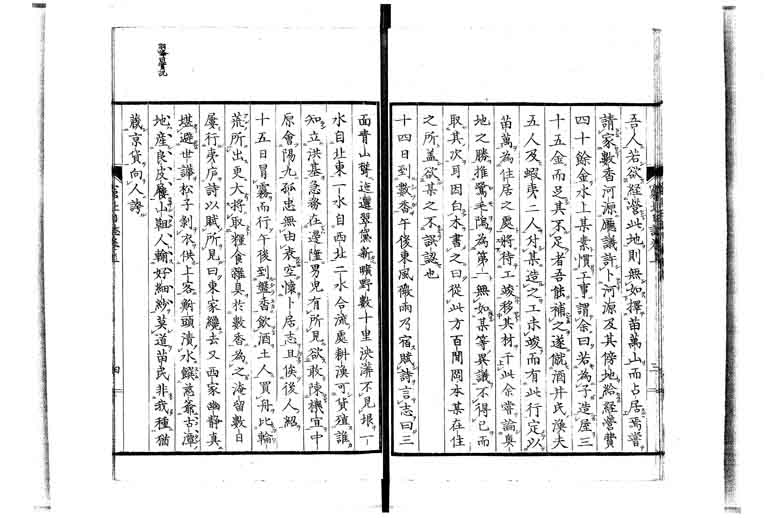 吾人若欲經營此地則無如擇苗萬山而占居焉嘗
請家數香河源廳議許卜河源及其傍地給經營費
四十餘金水上某業慣工事謂余曰若為予造屋三
十五金而足其不足者吾能補之遂僦酒井氏漁夫
五人及蝦夷二人付某造之工未竣而有此行定以
苗萬為住居之處將待工竣移其材于此余嘗論奧
地之勝推鷲毛隝為第一無如某等異議不得已而
取其次耳因白木書之曰從此方百間岡本某在住
之所盖欲某之不誤認也
十四日到數香午後東風微雨乃宿賦詩言志曰三
面青山聳迤邐翠黛新曠野數十里泱漭不見垠一
水自北東一水自西北二水合流處耕漁可貨殖誰
知立洪基急務在邊陲男兒有所見欲敢陳機宜中
原會陽九孤忠無由表空懷卜居志且俟後人紹
十五日冒霧而行午後到盤香飲酒土人買舟比輪
荒所出更大將取糧食雜具於數香為之淹留數日
屢行旁廬詩以賦所見曰東家纔去又西家幽靜真
堪避世譁松子剝衣供上客
地產良皮麈山靼人輸好細紗莫道苗民非我種猶
藏京貨向人誇